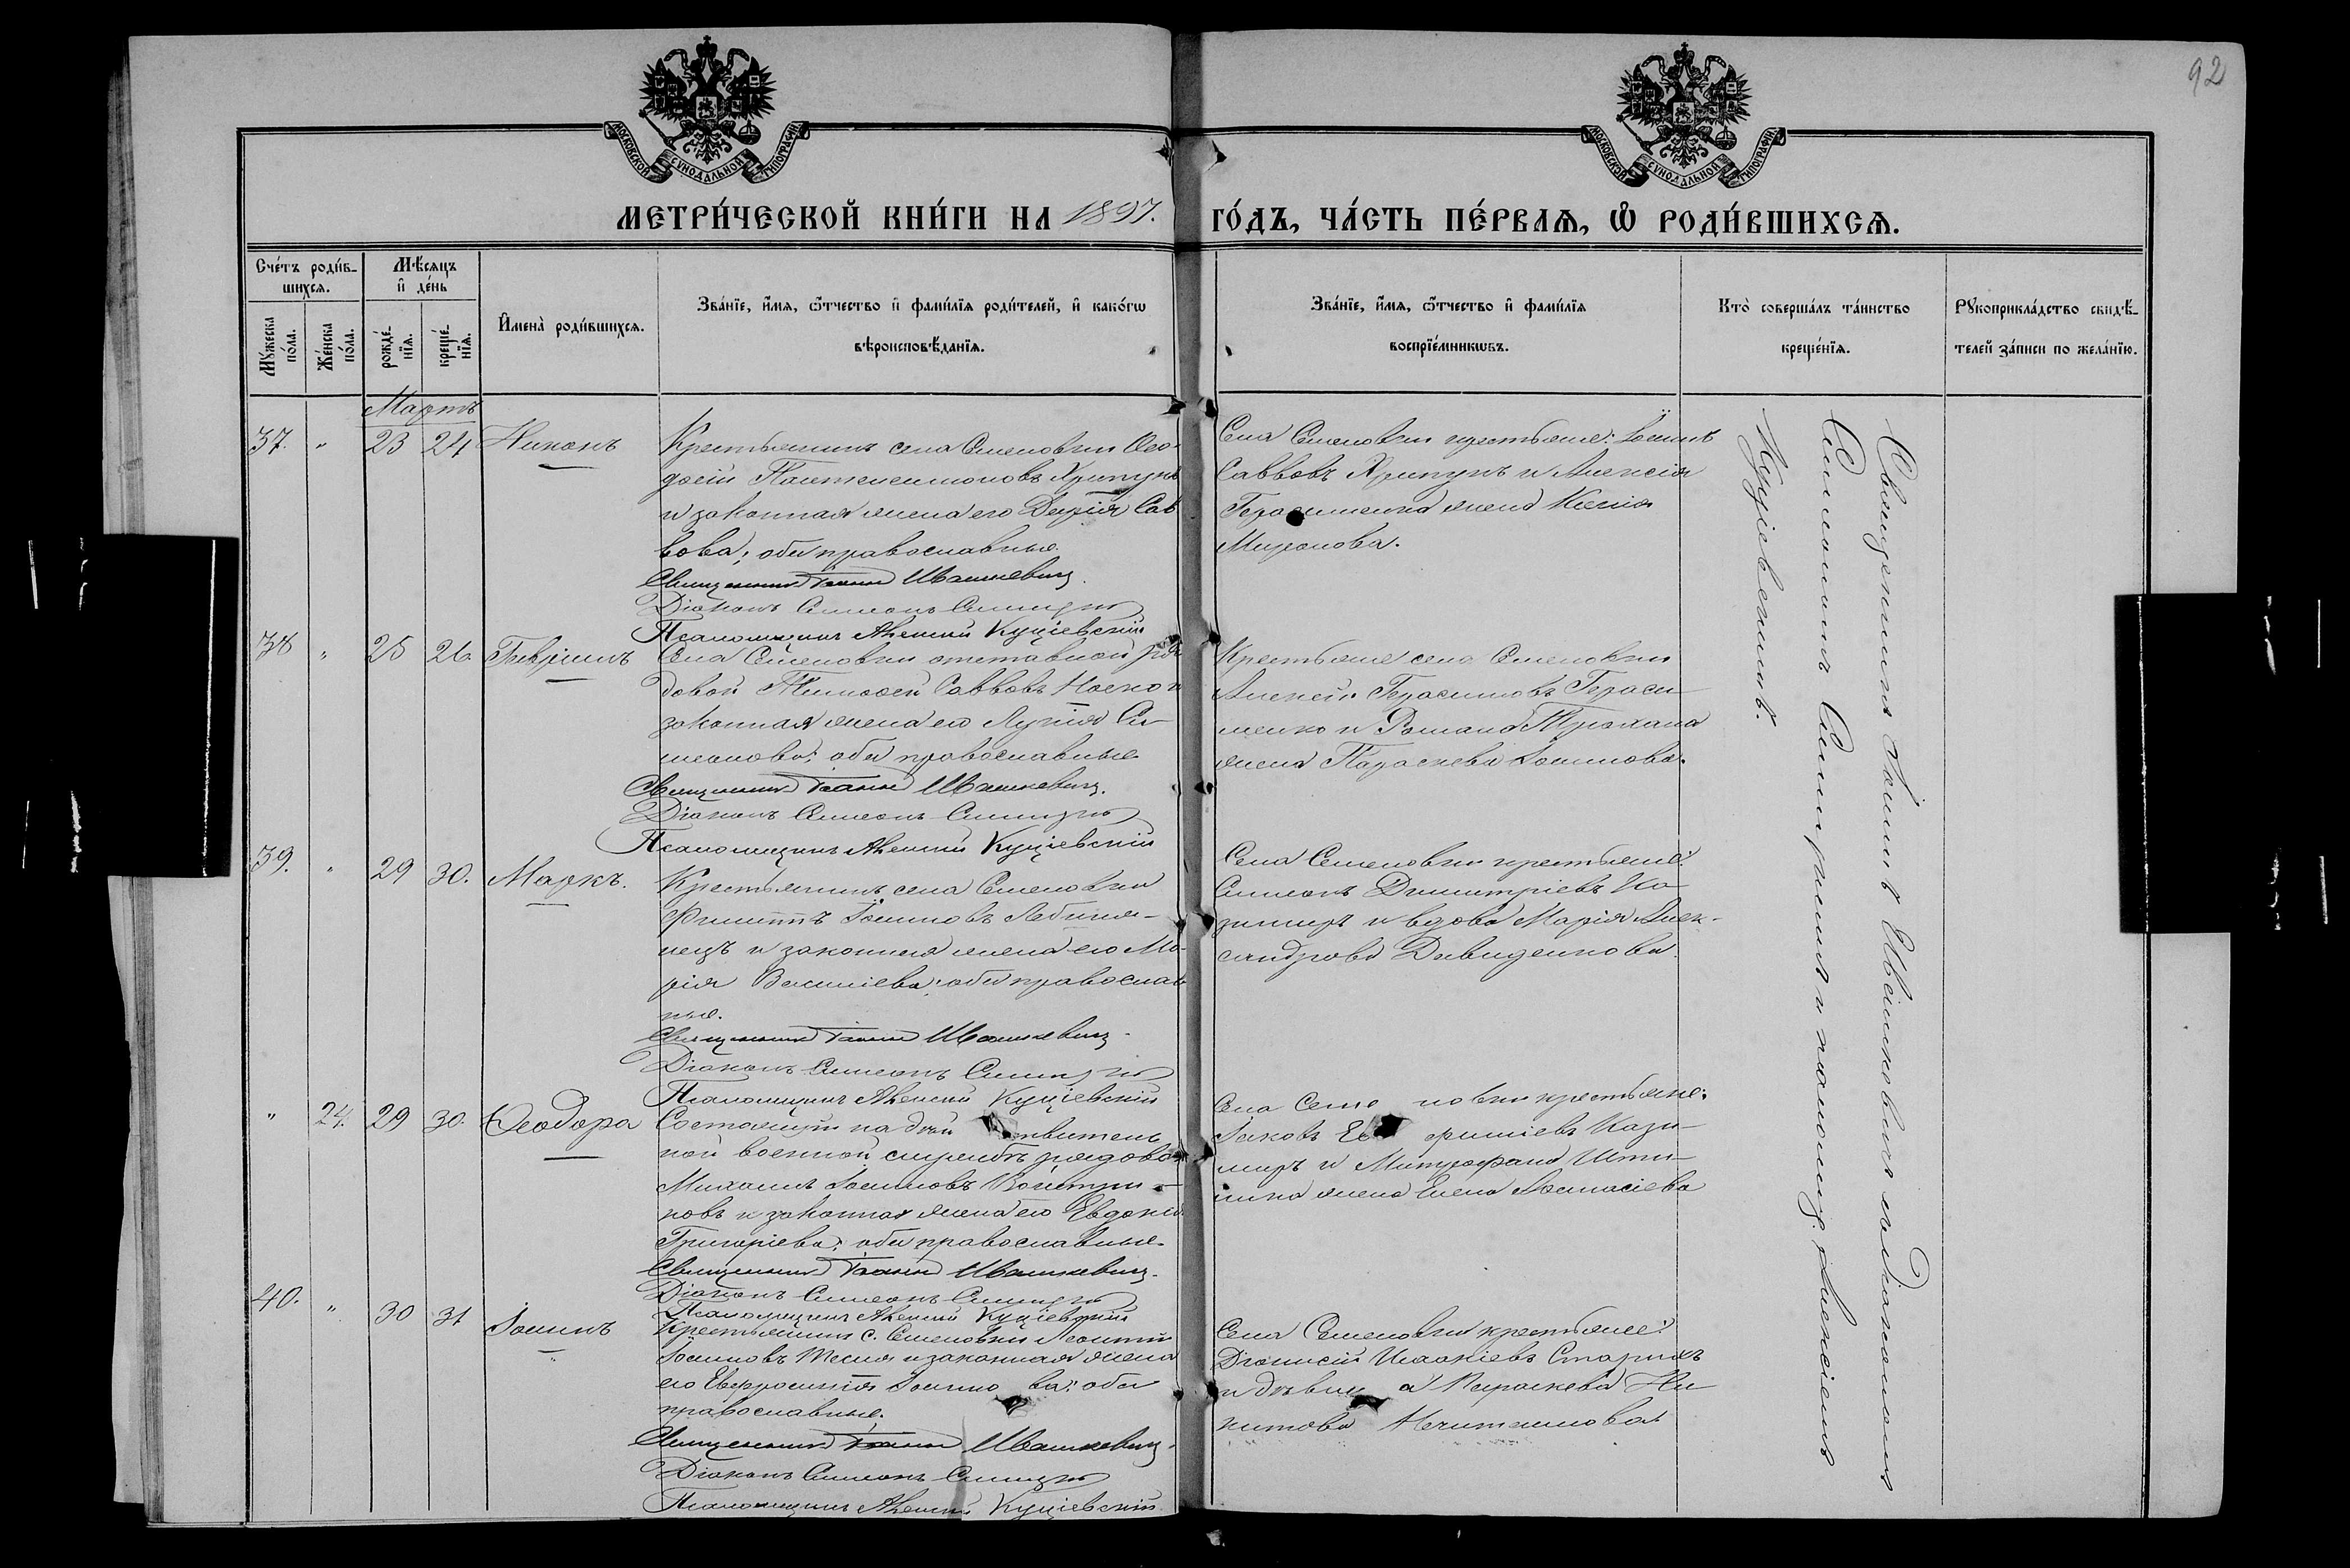 92
МОСКОВСКОЙ СУНОДАЛЬНОЙ ТИПОГРАФІИ
МОСКОВСКОЙ СУНОДАЛЬНОЙ ТИПОГРАФІИ
МЕТРИ́ЧЕСКОЙ КНИ́ГИ НА 1897.
ГО́ДЪ, ЧА́СТЬ ПЕ́РВАѦ, Ѡ҆ РОДИ́ВШИХСѦ.
Сче́тъ роди́в-
шихсѧ.
Мꙋ́жеска по́ла.
Же́нска по́ла.
Мѣ́сѧцъ
и҆ де́нь
рожде́-нїѧ.
креще́-нїѧ.
И҆мена̀ роди́вшихсѧ.
Зва́нїе, и҆́мѧ, ѻ҆́тчество и҆ фами́лїѧ роди́телей, и҆ како́гѡ
вѣроисповѣ́данїѧ.
Зва́нїе, и҆́мѧ, ѻ҆́тчество и҆ фами́лїѧ
воспрїе́мникѡвъ.
Кто̀ соверша́лъ та́инство
креще́нїѧ.
Рꙋкоприкла́дство свидѣ́-
телей за́писи по жела́нїю.
Мартъ
37. " 23 24 Никонъ
Крестьянинъ села Семеновки Ѳео-
досій Пантелеимоновъ Хрипунъ
и законная жена его Дарія Сав
вова; оба православные.
Священникъ Іоаннъ Ивашкевичъ.
Діаконъ Симеонъ
Псаломщикъ Алексій Куціевскій
Села Семеновки крестьяне: Іоаннъ
Саввовъ Хрипунъ и Алексія
Герасименка жена Ксенія
Миронова.
38 " 25 26. Гавріилъ
Села Семеновки отставной ря
довой Тимоѳей Саввовъ Носко и
законная жена его Лукія Си-
меонова; оба православные.
Священникъ Іоаннъ Ивашкевичъ.
Діаконъ Симеонъ
Псаломщикъ Алексій Куціевскій
Крестьяне села Семеновки
Алексѣй Герасимовъ Гераси-
менко и Романа Трохана
жена Параскева Іоаннова.
39. " 29 30. Маркъ.
Крестьянинъ села Семеновки
Филиппъ Іоанновъ Лебедин
нецъ и законная жена его Ма-
рія Василіева; оба православ
ные.
Священникъ Іоаннъ Ивашкевичъ.
Діаконъ Симеонъ
Псаломщикъ Алексій Куціевскій
Села Семеновки крестьяне:
Симеонъ Димитріевъ Ка-
зимиръ и вдова Марія Алек-
сандрова Давиденкова.
" 24. 29 30. Ѳеодора
Состоящій на дѣй твитель
ной военной службѣ рядовой
Михаилъ Іоанновъ
ковъ и законная жена его Евдокія
Григоріева; оба православные.
Священникъ Іоаннъ Ивашкевичъ.
Діаконъ Симеонъ
Псаломщикъ Алексій Куціевскій
Села Семе новки крестьяне:
Іаковъ фиміевъ Кази-
миръ и Митрофана
жена Елена Аѳанасіева
40. " 30 31 Іоаннъ
Крестьянинъ с. Семеновки Леонтій
Іоанновъ Тесля и законная жена
его Евфросинія Іоанно ва; оба
православные.
Священникъ Іоаннъ Ивашкевичъ.
Діаконъ Симеонъ
Псаломщикъ Алексій Куціевскій
Села Семеновки крестьяне:
Діонисій Исаакіевъ Старыхъ
и дѣвиц а Параскева Ни-
китова
Священникъ Іоаннъ Ивашкевичъ съ діакономъ
Симеономъ и псаломщ. Алексіемъ
Куціевскимъ.